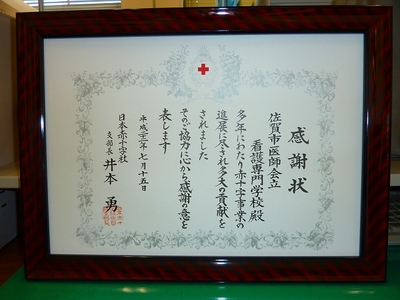 感謝状
佐賀市医師会立
看護専門学校殿
多年にわたり赤十字事業の
進展に尽され多大の貢献を
されました
そのご協力に心から感謝の意を
表します
平成二十二年七月十五日
日本赤十字社
支部長 井本 勇